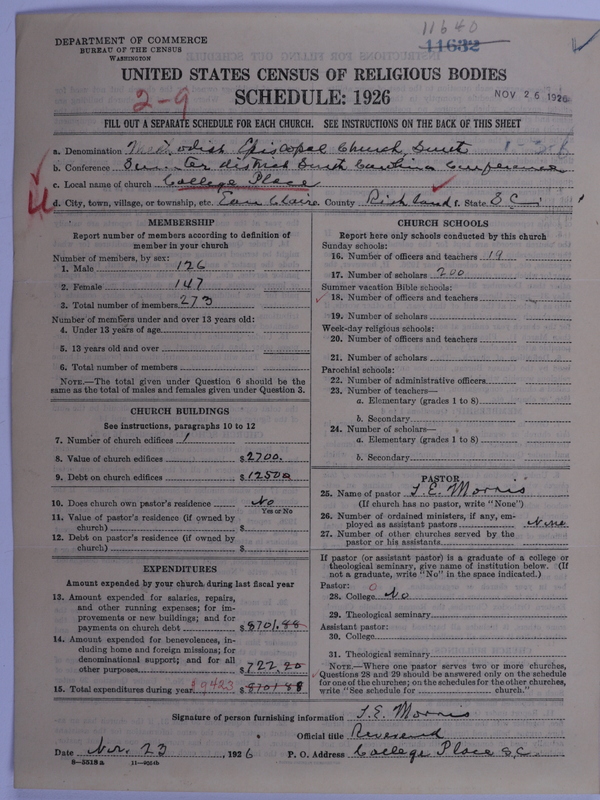 11640
11632
DEPARTMENT OF COMMERCE
BUREAU OF THE CENSUS
WASHINGTON
UNITED STATES CENSUS OF RELIGIOUS BODIES
2-9
SCHEDULE: 1926
NOV 26 1926
FILL OUT A SEPARATE SCHEDULE FOR EACH CHURCH. SEE INSTRUCTIONS ON THE BACK OF THIS SHEET
a. Denomination Methodish Episcopal Church, South
b. Conference Sumter district South Carolina Conference
c. Local name of church College Place
d. City, town, village, or township, etc. Eau Claire County Richland f. State S C
MEMBERSHIP
Report number of members according to definition of
member in your church
Number of members, by sex:
1. Male 126
2. Female 147
3. Total number of members 273
Number of members under and over 13 years old:
4. Under 13 years of age
5. 13 years old and over
6. Total number of members
NOTE.—The total given under Question 6 should be the
same as the total of males and females given under Question 3.
CHURCH BUILDINGS
See instructions, paragraphs 10 to 12
7. Number of church edifices 1
8. Value of church edifices $2700.
9. Debt on church edifices $12500
10. Does church own pastor's residence No
Yes or No
11. Value of pastor's residence (if owned by
church) $
12. Debt on pastor's residence (if owned by
church) $
EXPENDITURES
Amount expended by your church during last fiscal year
13. Amount expended for salaries, repairs,
and other running expenses; for im-
provements or new buildings; and for
payments on church debt $8701.88
14. Amount expended for benevolences, in-
cluding home and foreign missions; for
denominational support; and for all
other purposes $722.20
15. Total expenditures during year $9423 $8701 88
CHURCH SCHOOLS
Report here only schools conducted by this church
Sunday schools:
16. Number of officers and teachers 19
17. Number of scholars 200
Summer vacation Bible schools:
18. Number of officers and teachers
19. Number of scholars
Week-day religious schools:
20. Number of officers and teachers
21. Number of scholars
Parochial schools:
22. Number of administrative officers
23. Number of teachers—
a. Elementary (grades 1 to 8)
b. Secondary
24. Number of scholars—
a. Elementary (grades 1 to 8)
b. Secondary
PASTOR
25. Name of pastor T. E. Morris
(If church has no pastor, write "None")
26. Number of ordained ministers, if any, em-
ployed as assistant pastors None
27. Number of other churches served by the
pastor or his assistants
If pastor (or assistant pastor) is a graduate of a college or
theological seminary, give name of institution below. (If
not a graduate, write "No" in the space indicated.)
Pastor: 0
28. College No
29. Theological seminary
Assistant pastor:
30. College
31. Theological seminary
NOTE.—Where one pastor serves two or more churches,
Questions 28 and 29 should be answered only on the schedule
for one of the churches; on the schedules for the other churches,
write "See schedule for church."
Signature of person furnishing information T. E. Morris
Official title Reverend
Date Nov. 23, 1926 P. O. Address College Place S.C.
8-5518a